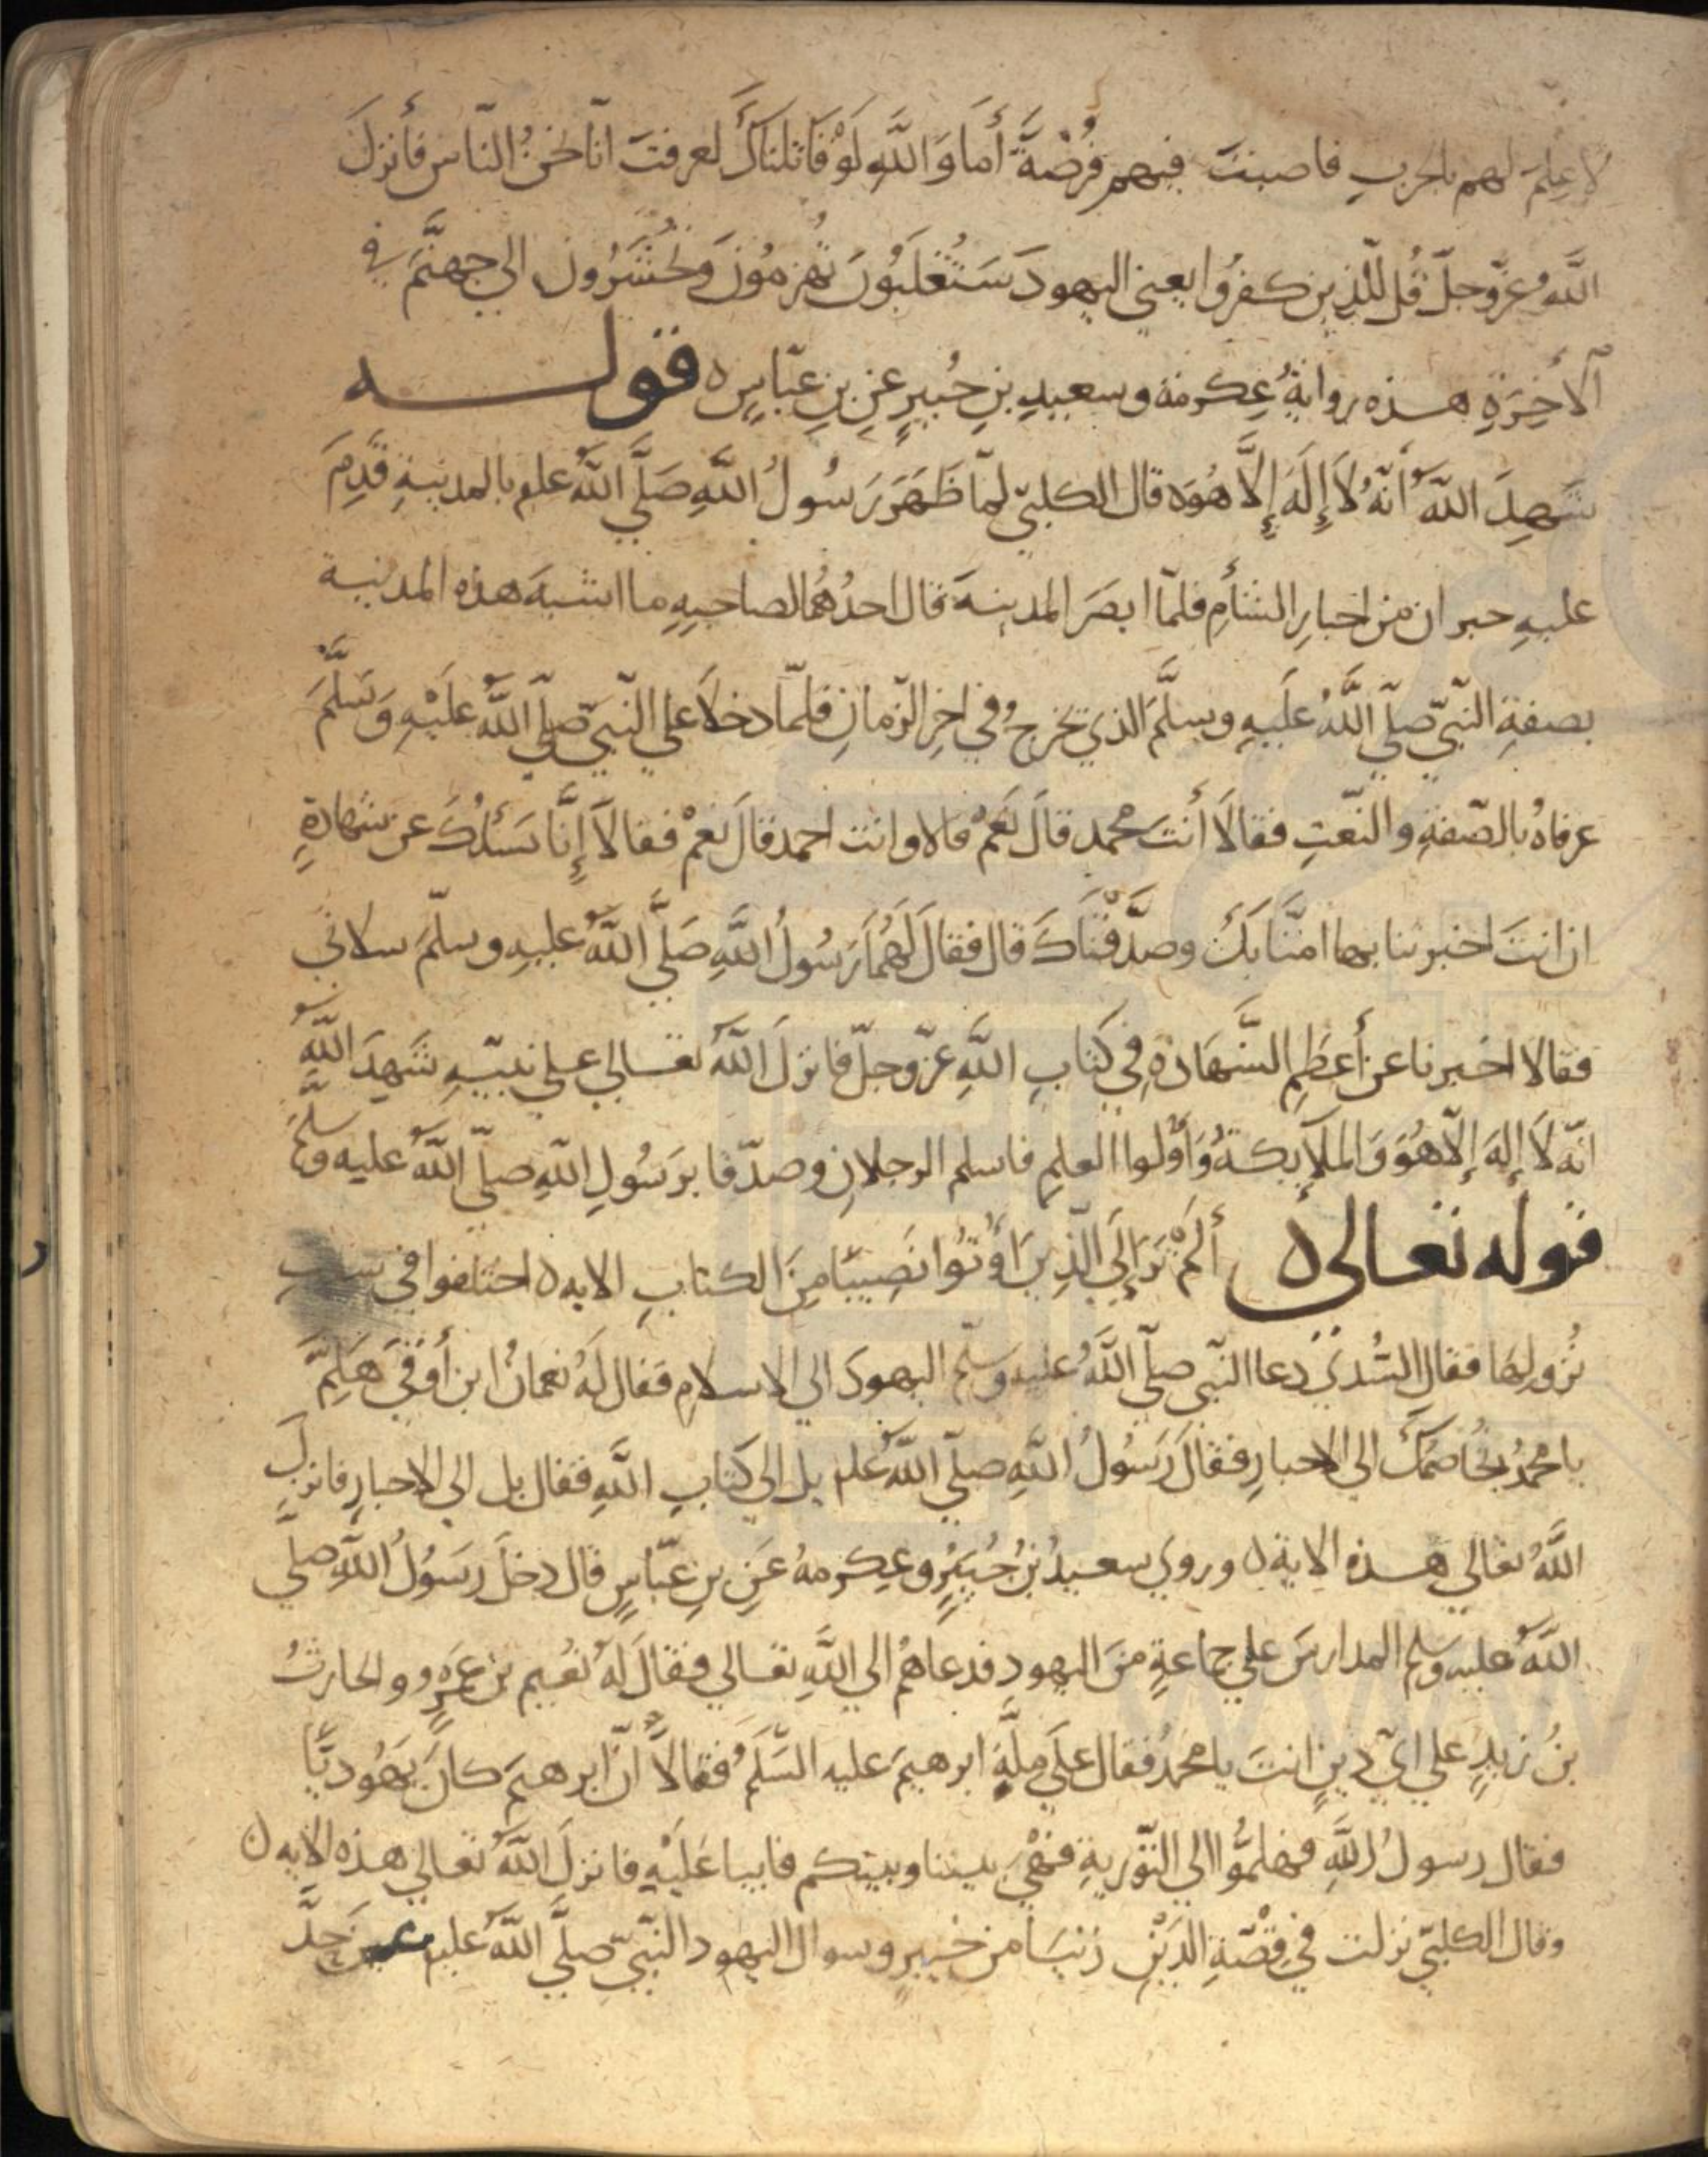 لا علم لهم بالحرب فاصبت فيهم فُرْصَةً أَمَا وَاللَّهِ لَوْ قَاتلناكَ لعرفتَ انّا نحنُ النّاس فأنزلَ
اللَّهُ عزّ وجلّ قُل للّذين كفرُوا يعني اليهودَ سَتُغْلَبُونَ تُهزمُونَ وَتُحْشَرُونَ الى جهنَّمَ في
الآخِرَةِ هذه روايةُ عِكرمة وسعيدِ بنِ جُبيرٍ عنِ بنِ عبّاسٍ ه قوله
شَهِدَ اللَّهُ أَنّهُ لَا إِلَهَ إِلَّا هُوَ ه قال الكلبيّ لمّا ظَهَرَ رَسُولُ اللَّهِ صَلَّى اللَّهُ علم بالمدينةِ قَدِمَ
عليهِ حبران من احبارِ الشأمِ فلمّا ابصَرَ المدينةَ قال احدُهُما لصاحبِهِ ما اشبهَ هذه المدينة
بصفةِ النّبيّ صلّى اللَّهُ علَيهِ وسلَّمَ الذي تخرجُ في اخِرِ الزّمانِ فلمّا دخلاَ على النّبيّ صلّى اللَّهُ علَيْهِ وَسَلَّمَ
عرفاهُ بالصّفةِ والنّعتِ فقالَا أَنتَ محمد قالَ نَعَمْ قالا وانت احمد قالَ نعَمْ فقالَا إِنَّا نَسَئلُكَ عن شهادةٍ
ان انتَ اخبرتنا بها امنَّا بكَ وصدَّقْنَاكَ قال فقالَ لَهُمَا رَسُولُ اللَّهِ صَلَّى اللَّهُ عليهِ وسلّمَ سلاني
فقالا اخبرنا عن أعظمِ الشَّهَادَةِ في كتابِ اللَّهِ عزّ وجلّ فانزلَ اللَّهُ تعالى على نبيّهِ شَهِدَ اللَّهُ
انّهُ لَا إِلهَ إِلّا هُوَ وَالملَايِكةُ وَأُولُوا العلمِ فاسلم الرجلانِ وصدّقا برَسُولِ اللَّهِ صلّى اللَّهُ عليه وسلَّمَ
قوله تعالى ه أَلَمْ تَرَ إِلَى الّذِينَ أُوتُوا نَصِيبًا مِنَ الكتابِ الايه ه اختلفوا في سببِ
نُزُولِهَا فقالَ السُّديّ دعا النّبيّ صلّى اللَّهُ عليه وسلّم اليهودَ الى الاسلامِ فقال لَهُ نعمانُ ابن أَوْفَى هَلُمَّ
يا محمدُ نُخَاصمُكَ الى الاحبارِ فقالَ رَسُولُ اللَّهِ صلّى اللَّهُ علم بل الى كتابِ اللَّهِ فقال بل الى الاحبارِ فانزلَ
اللَّهُ تعالى هذه الاية ه وروى سعيدُ بنُ جُبَيْرٍ وعِكرمهُ عَنِ بنِ عبّاسٍ قال دخلَ رسُولُ اللَّهِ صلى
اللَّهُ عليه وسلم المدارسَ على جماعةٍ منَ اليهودِ فدعاهُمْ الى اللَّهِ تعالى فقالَ لَهُ نُعَيم بن عَمرٍو والحارثُ
بنُ زيدٍ على ايّ دينٍ انتَ يا محمدُ فقال علَى مِلَّةِ ابرهيمَ عليه السَّلَمُ فقالَا انّ ابرهيمَ كانَ يَهُوديًّا
فقال رسولُ اللَّهِ فهلُمُّوا الى التّوريةِ فهْيَ بيننا وبينكم فابيا عَلَيْهِ فانزلَ اللَّهُ تعالى هذه الايه ه
وقال الكلبيّ نزلت في قصّةِ الذَيْنِ زنيَا من خيبرٍ وسوال اليهود النّبيّ صلَّى اللَّهُ عليه عن حدِّ